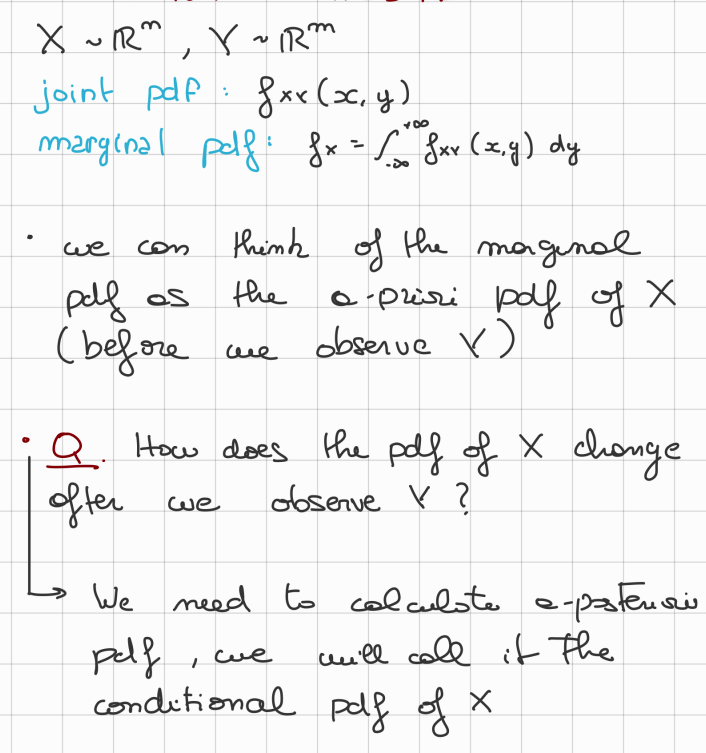 X ~ ℝᵐ , Y ~ ℝᵐ
joint pdf : f_XY (x, y)
marginal pdf: f_X = ∫_{-∞}^{+∞} f_XY (x,y) dy
• we can think of the marginal
pdf as the a-priori pdf of X
(before we observe Y)
• Q. How does the pdf of X change
after we observe Y ?
↳ We need to calculate a-posteriori
pdf , we will call it the
conditional pdf of X